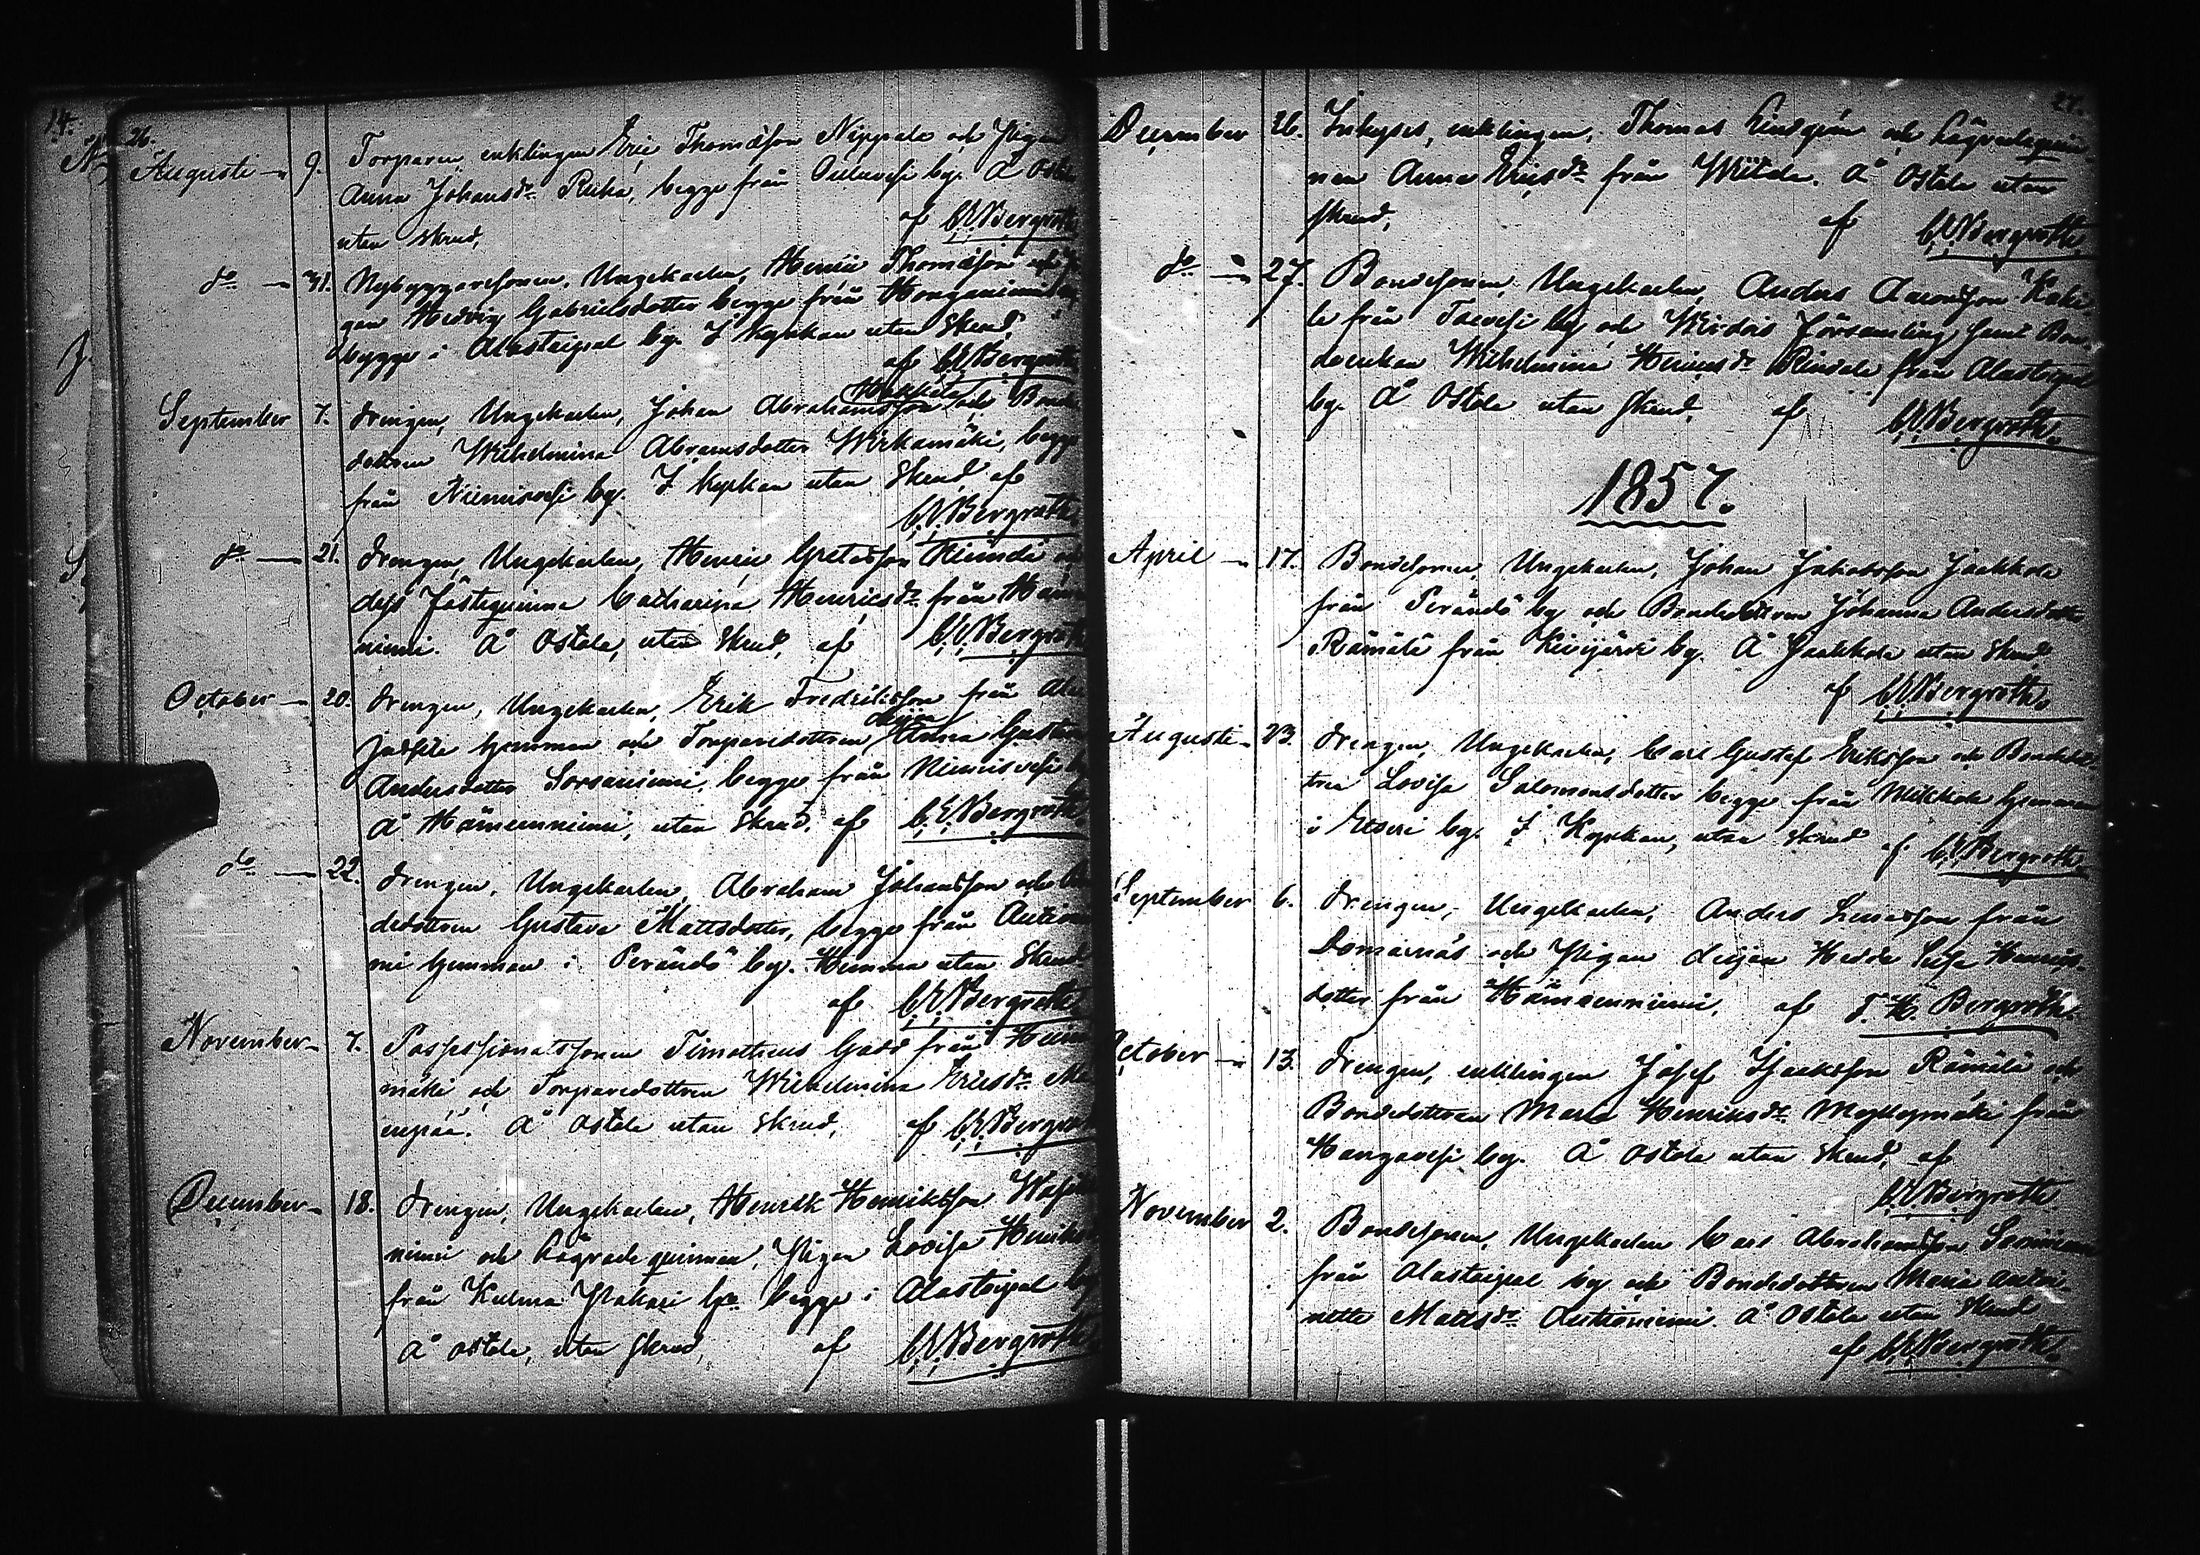 14.
26.
Augusti — 9. Torparen enklingen Eric Thomasson Nippala och Pigan
Anna Johansdr Ruha, begge från Ouluvesi by. Å Ostola
utan skrud, af C.E. Bergroth
do — 31. Nybyggaresonen, Ungekarlen, Henric Thomasson och
gan Hedvig Gabrielsdotter begge från Honganiemi
bygge i Alastaipal by. I Kyrkan utan skrud
af C.E. Bergroth
September 7. Drengen, Ungekarlen, Johan Abrahamsson och Bonde
dottren Wilhelmina Abramsdotter Wirkamäki, begge
från Niemisvesi by. I Kyrkan utan skrud af
C.E. Bergroth
do — 21. Drengen, Ungekarlen, Henric Gretasson
dess Fästeqvinna Catharina Henricsdr från
niemi. Å Ostola, utan skrud, af C.E. Bergroth
October — 20. Drengen, Ungekarlen, Erik Fredriksson från
hemman och Torparedottren Gustava
Andersdotter Sorsaniemi, begge från Niemisvesi by
å Hämeenniemi, utan skrud. af C.E. Bergroth
do — 22. Drengen, Ungekarlen, Abraham Johansson och
dedottren Gustava Mattsdotter, begge från Autio
mi hemman i Peränds by. Hemma utan skrud
af C.E. Bergroth
November — 7. Possessionatssonen Timotheus Gadd från
mäki och Torparedottren Wilhelmina Ericsdr
enpää. Å Ostola utan skrud, af C.E. Bergroth
December — 18. Drengen, Ungekarlen, Henrik Henriksson
niemi och Lägradeqvinnan, Pigan Lovisa Henriks
från Kulma begge i Alastaipal by
Å Ostola, utan skrud, af C.E. Bergroth
27.
December 26. Inhyses, enklingen, Thomas Lindqvin och Lägradeqvin-
nan Anna Ericsdr från Wiitala. Å Ostola utan
skrud, af C.E. Bergroth
do — 27. Bondesonen, Ungekarlen, Anders Aaronsson
la från by och Wirdois Församling samt Bon-
deenkan Wilhelmina Henricsdr från Alastaipal
by. Å Ostola utan skrud. af C.E. Bergroth.
1857.
April — 17. Bondesonen, Ungekarlen, Johan Jakobsson Jaakkola
från Peränds by och Bondedottren Johanna Andersdotter
Rämälä från Kivijärvi by. Å Jaakkola utan skrud,
af C.E. Bergroth.
Augusti — 23. Drengen, Ungekarlen, Carl Gustaf Eriksson och Bondedot-
tren Lovisa Salomonsdotter begge från Mikkola hemman
i Etseri by. I Kyrkan, utan skrud af C.E. Bergroth.
September 6. Drengen, Ungekarlen, Anders från
Domarnäs och Pigan Hedda Henriks-
dotter från Hämeenniemi. af F. H. Bergroth.
October — 13. Drengen, enklingen Josef Isaksson Rämälä och
Bondedottren Maria Henriksdr Myllymäki från
Hangavesi by. Å Ostola utan skrud, af
C.E. Bergroth.
November 2. Bondesonen, Ungekarlen Carl Abrahamsson
från Alastaipal by och Bondedottren Maria Antoi-
nette Mattsdr Autioniemi. Å Ostola utan skrud
af C.E. Bergroth.